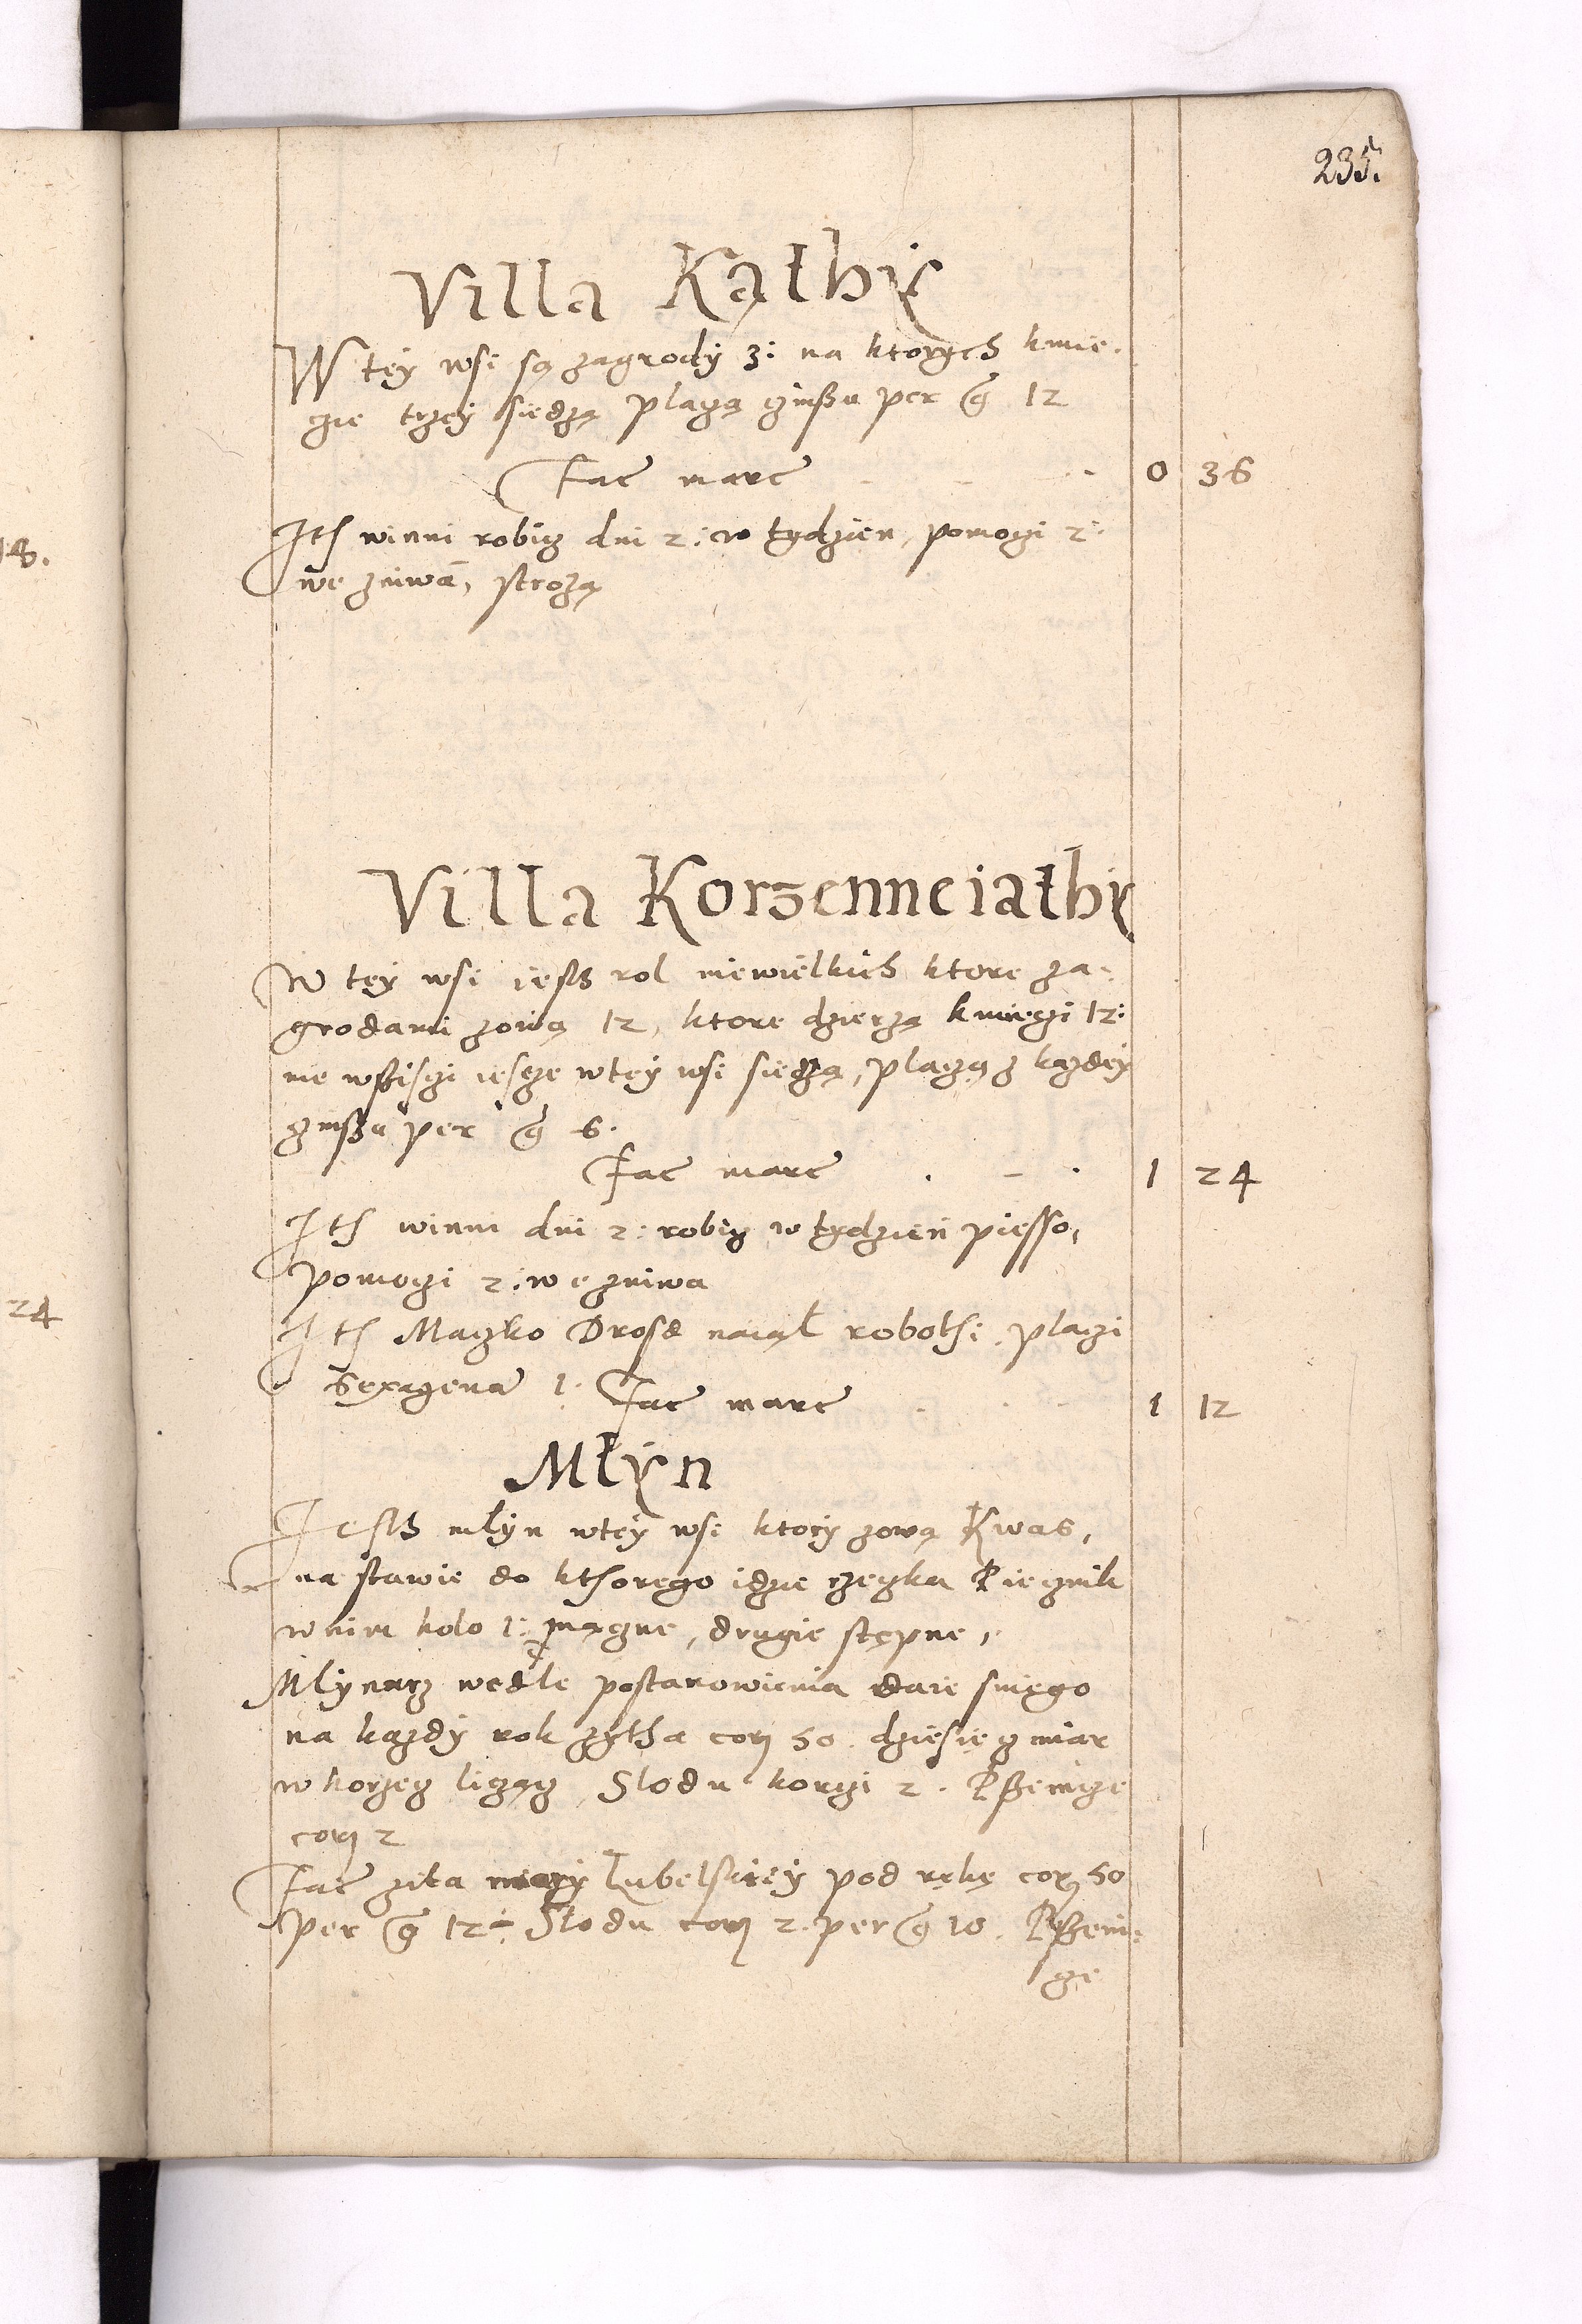 235.
Villa Kąthy
W tey wsi są zagrody 3: na ktorych kmie-
czie trzey siedzą płaczą czinßu per g 12
fac marc 0 36
Ith winni robicz dni 2: w tydzien, pomogi 2:
we zniwa, strozą
Villa Korzenneiathy
W tey wsi iesth rol niewielkich ktore za-
grodami zową 12, ktore dzierzą kmieczi 12:
nie wßisczi iescze w tey wsi siedzą, płaczą z kazdey
czinßu per g 6.
fac marc 1 24
Ith winni dni 2: robicz w tydzien piesso,
pomogi 2: we zniwa
Ith Maczko Drosd naiął robothi, płaczi
Sexagena 1: fac marc 1 12
Młyn
Jesth młyn w tey wsi ktory zową Kwas,
na stawie do kthorego idzie rzeyka Piecznik
w nim koło 1: mączne, drugie stępne,
Młynarz wedle postanowienia daie s niego
na kazdy rok zytha cor 50. dziesięcz miar
w korzecz licząc, Słodu korczi 2. Pßenicze
cor 2
fac zita miary Lubelskiey pod rękę cor 50
per g 12 Słodu cor 2. per g 10. Pßeni-
cze
18.
24